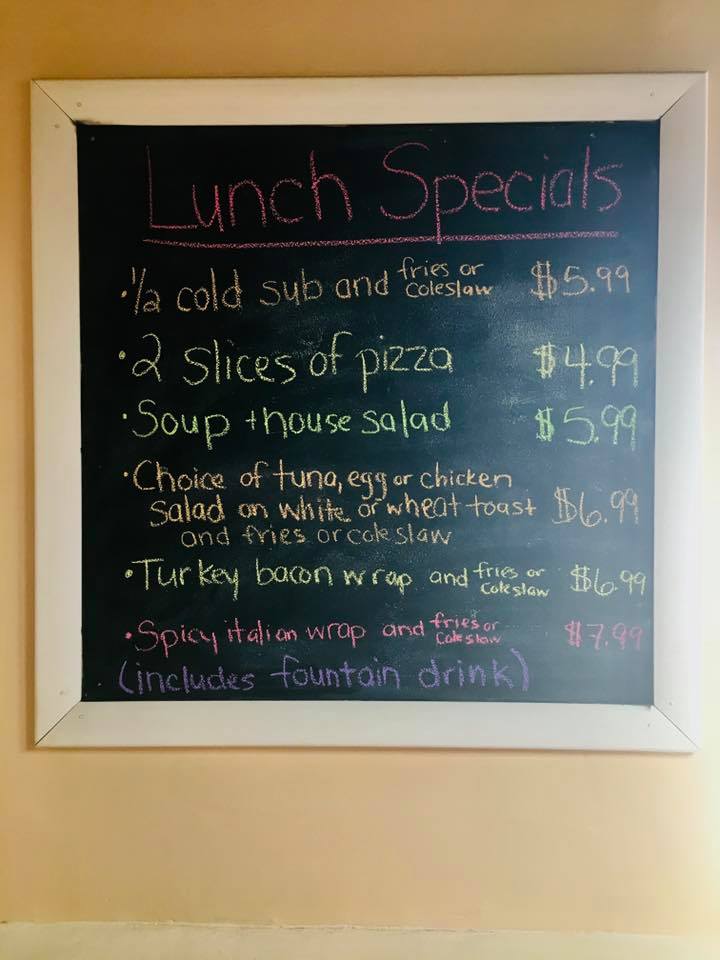 Lunch Specials
·1/2 cold sub and fries or coleslaw $5.99
·2 slices of pizza $4.99
·Soup + house salad $5.99
·Choice of tuna, egg or chicken
salad on white or wheat toast $6.99
and fries or coleslaw
·Turkey bacon wrap and fries or coleslaw $6.99
·Spicy italian wrap and fries or coleslaw $7.99
(includes fountain drink)